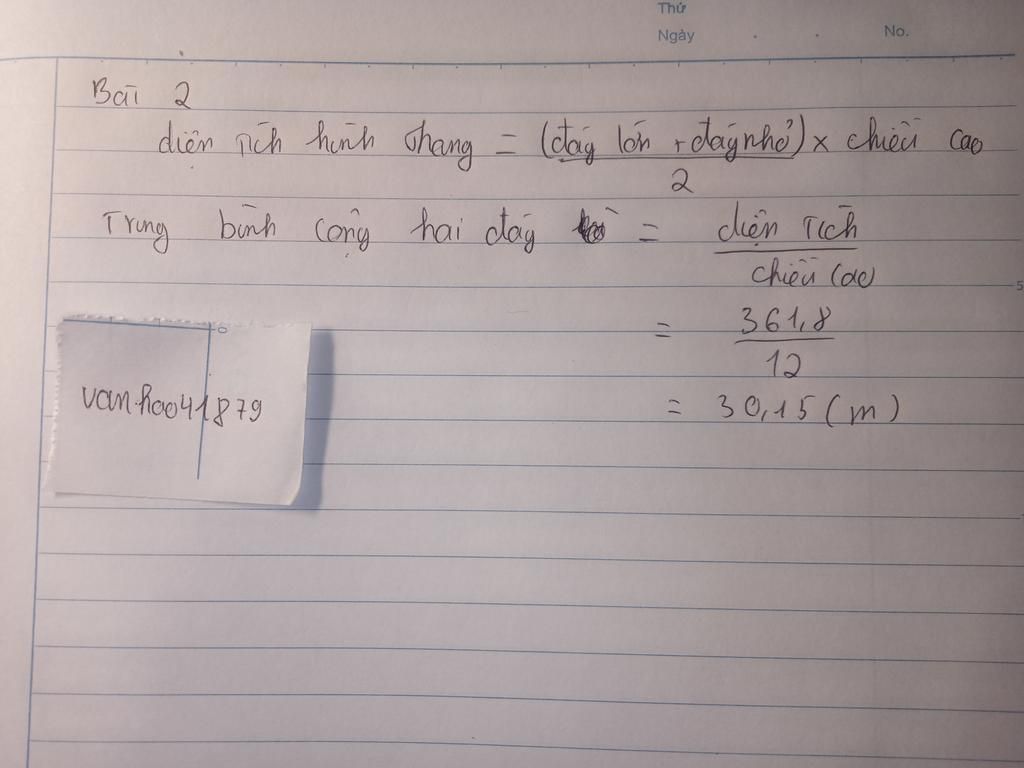 Thứ
Ngày . . No.
Bài 2
diện tích hình thang = (đáy lớn + đáy nhỏ) x chiều cao
2
Trung bình cộng hai đáy = diện tích
chiều cao
= 361,8
12
= 30,15 (m)
vanhao41879